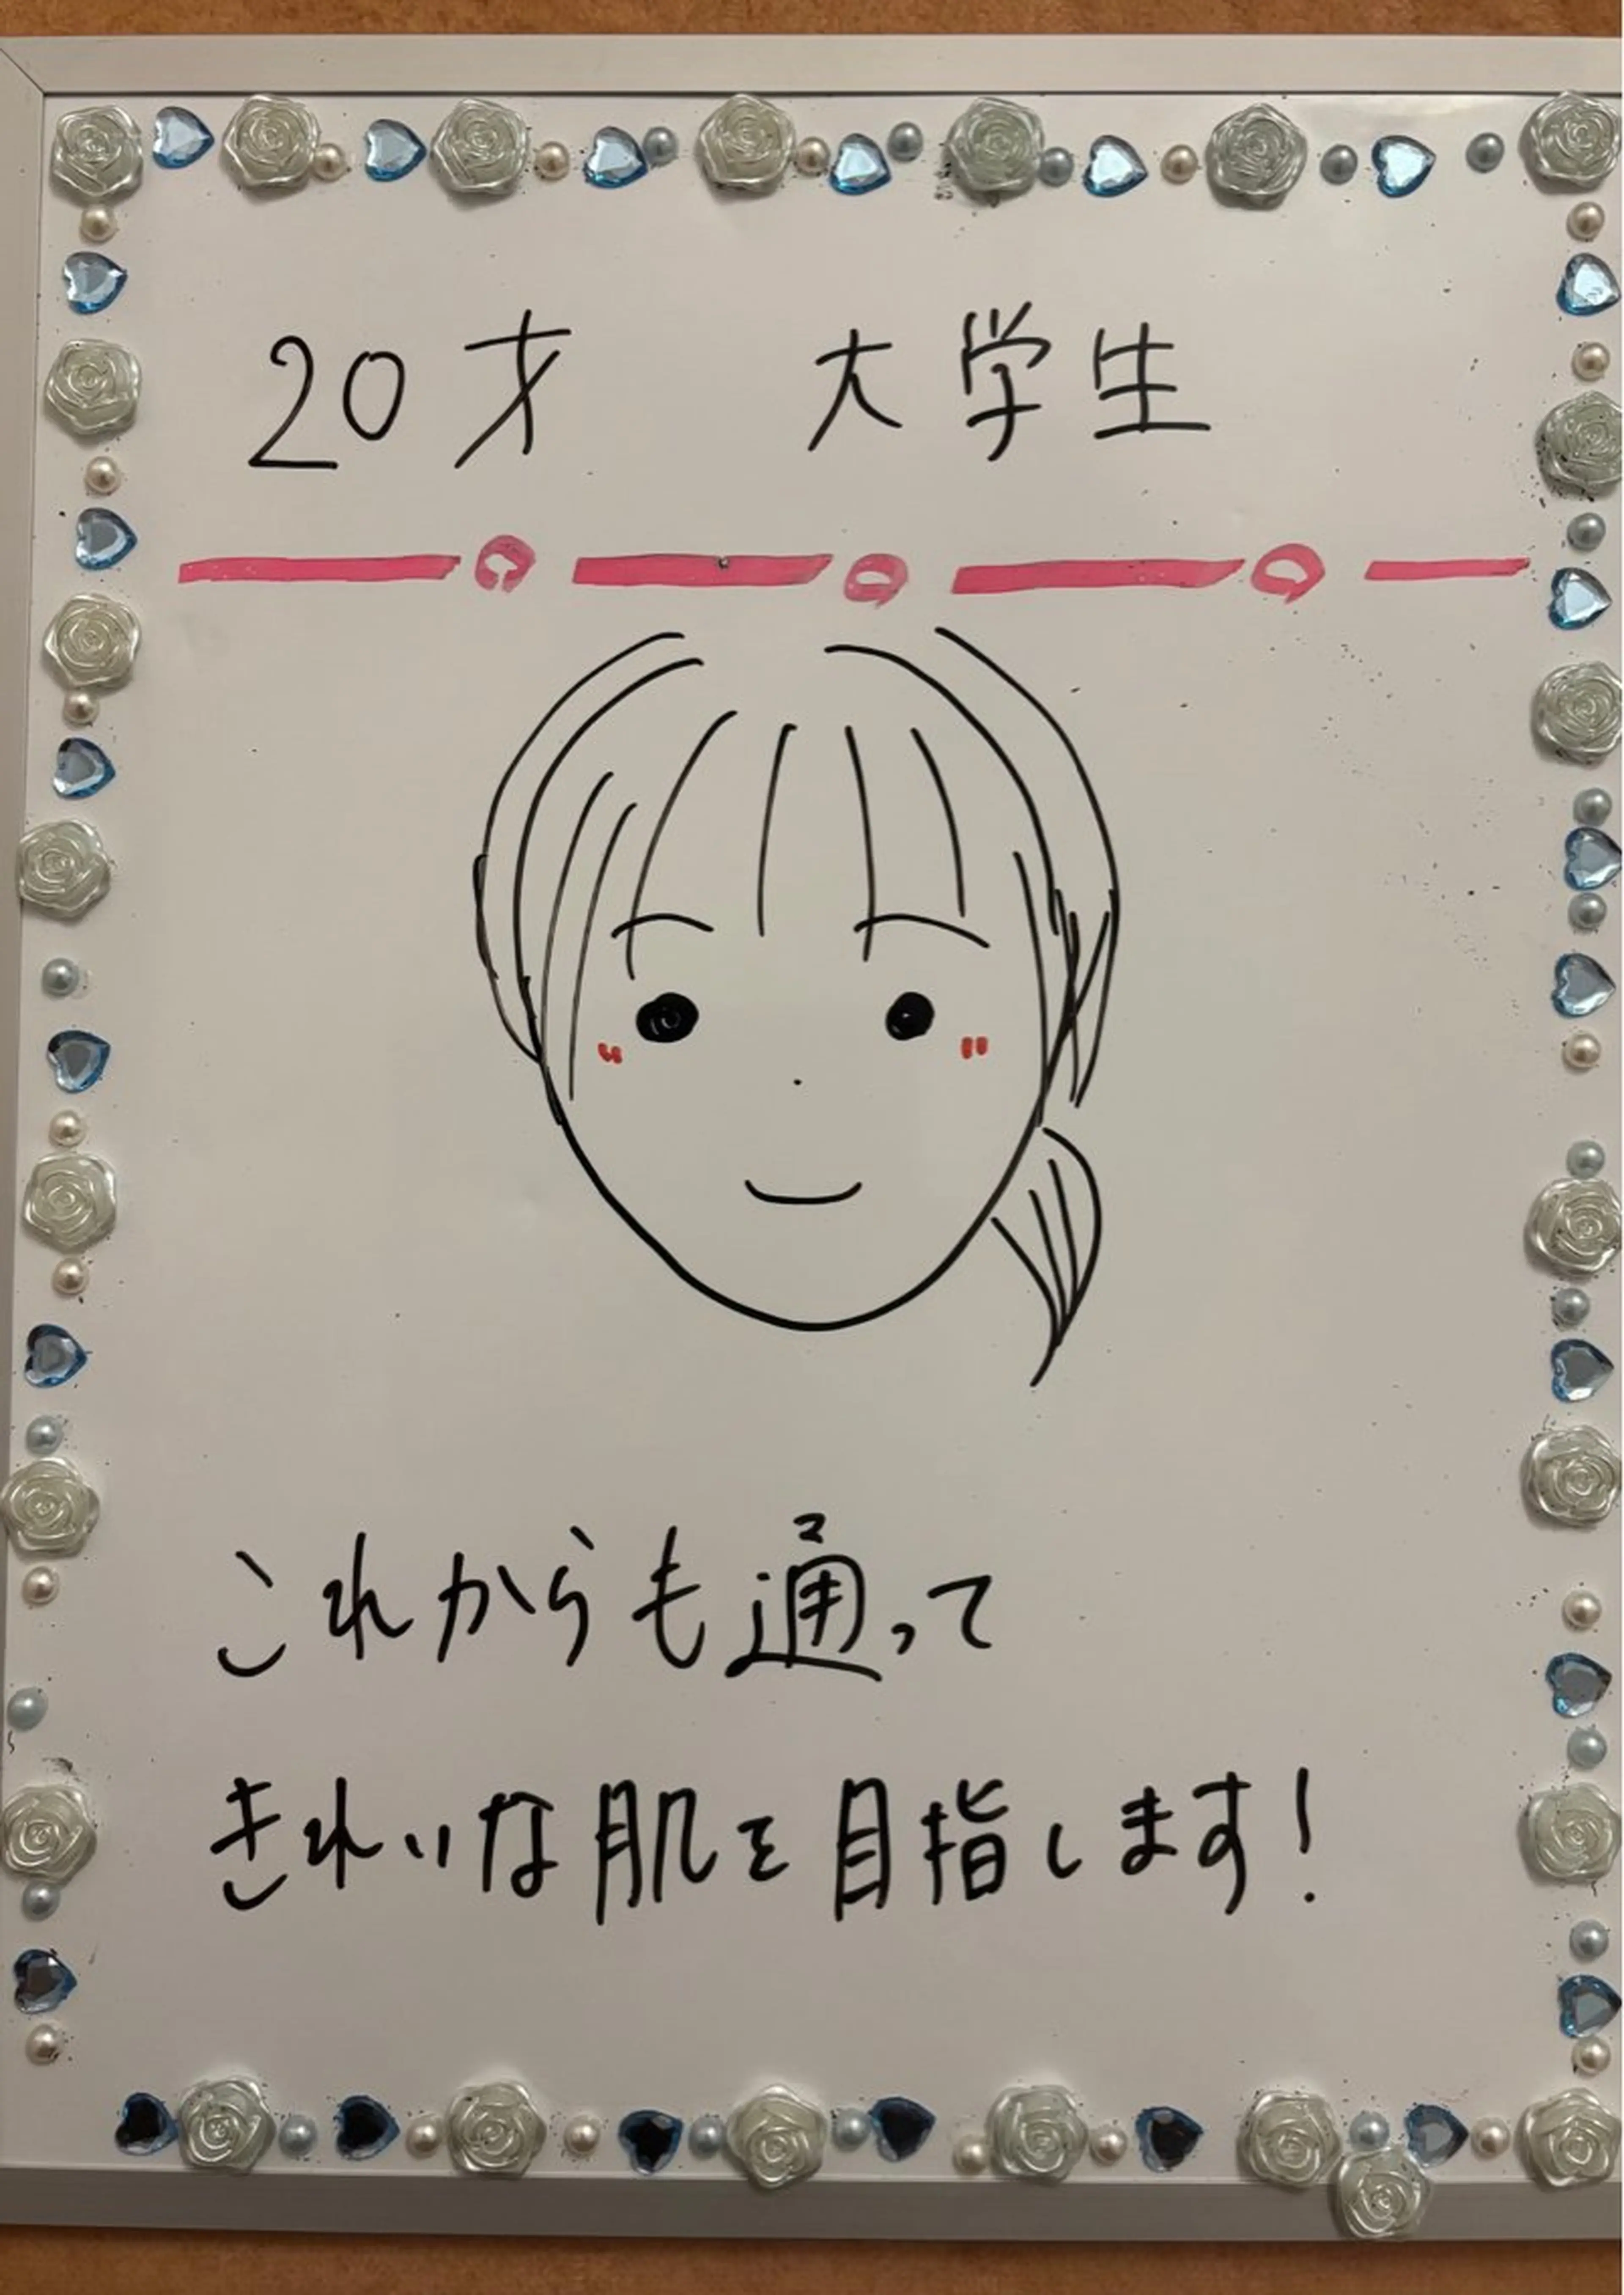 20才 大学生
これからも通って
きれいな肌を目指します!